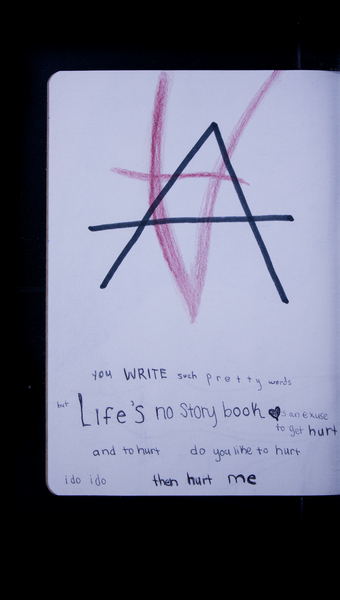 you WRITE such pretty words
but Life's no story book ♥s an excuse
to get hurt
and to hurt do you like to hurt
i do i do then hurt me